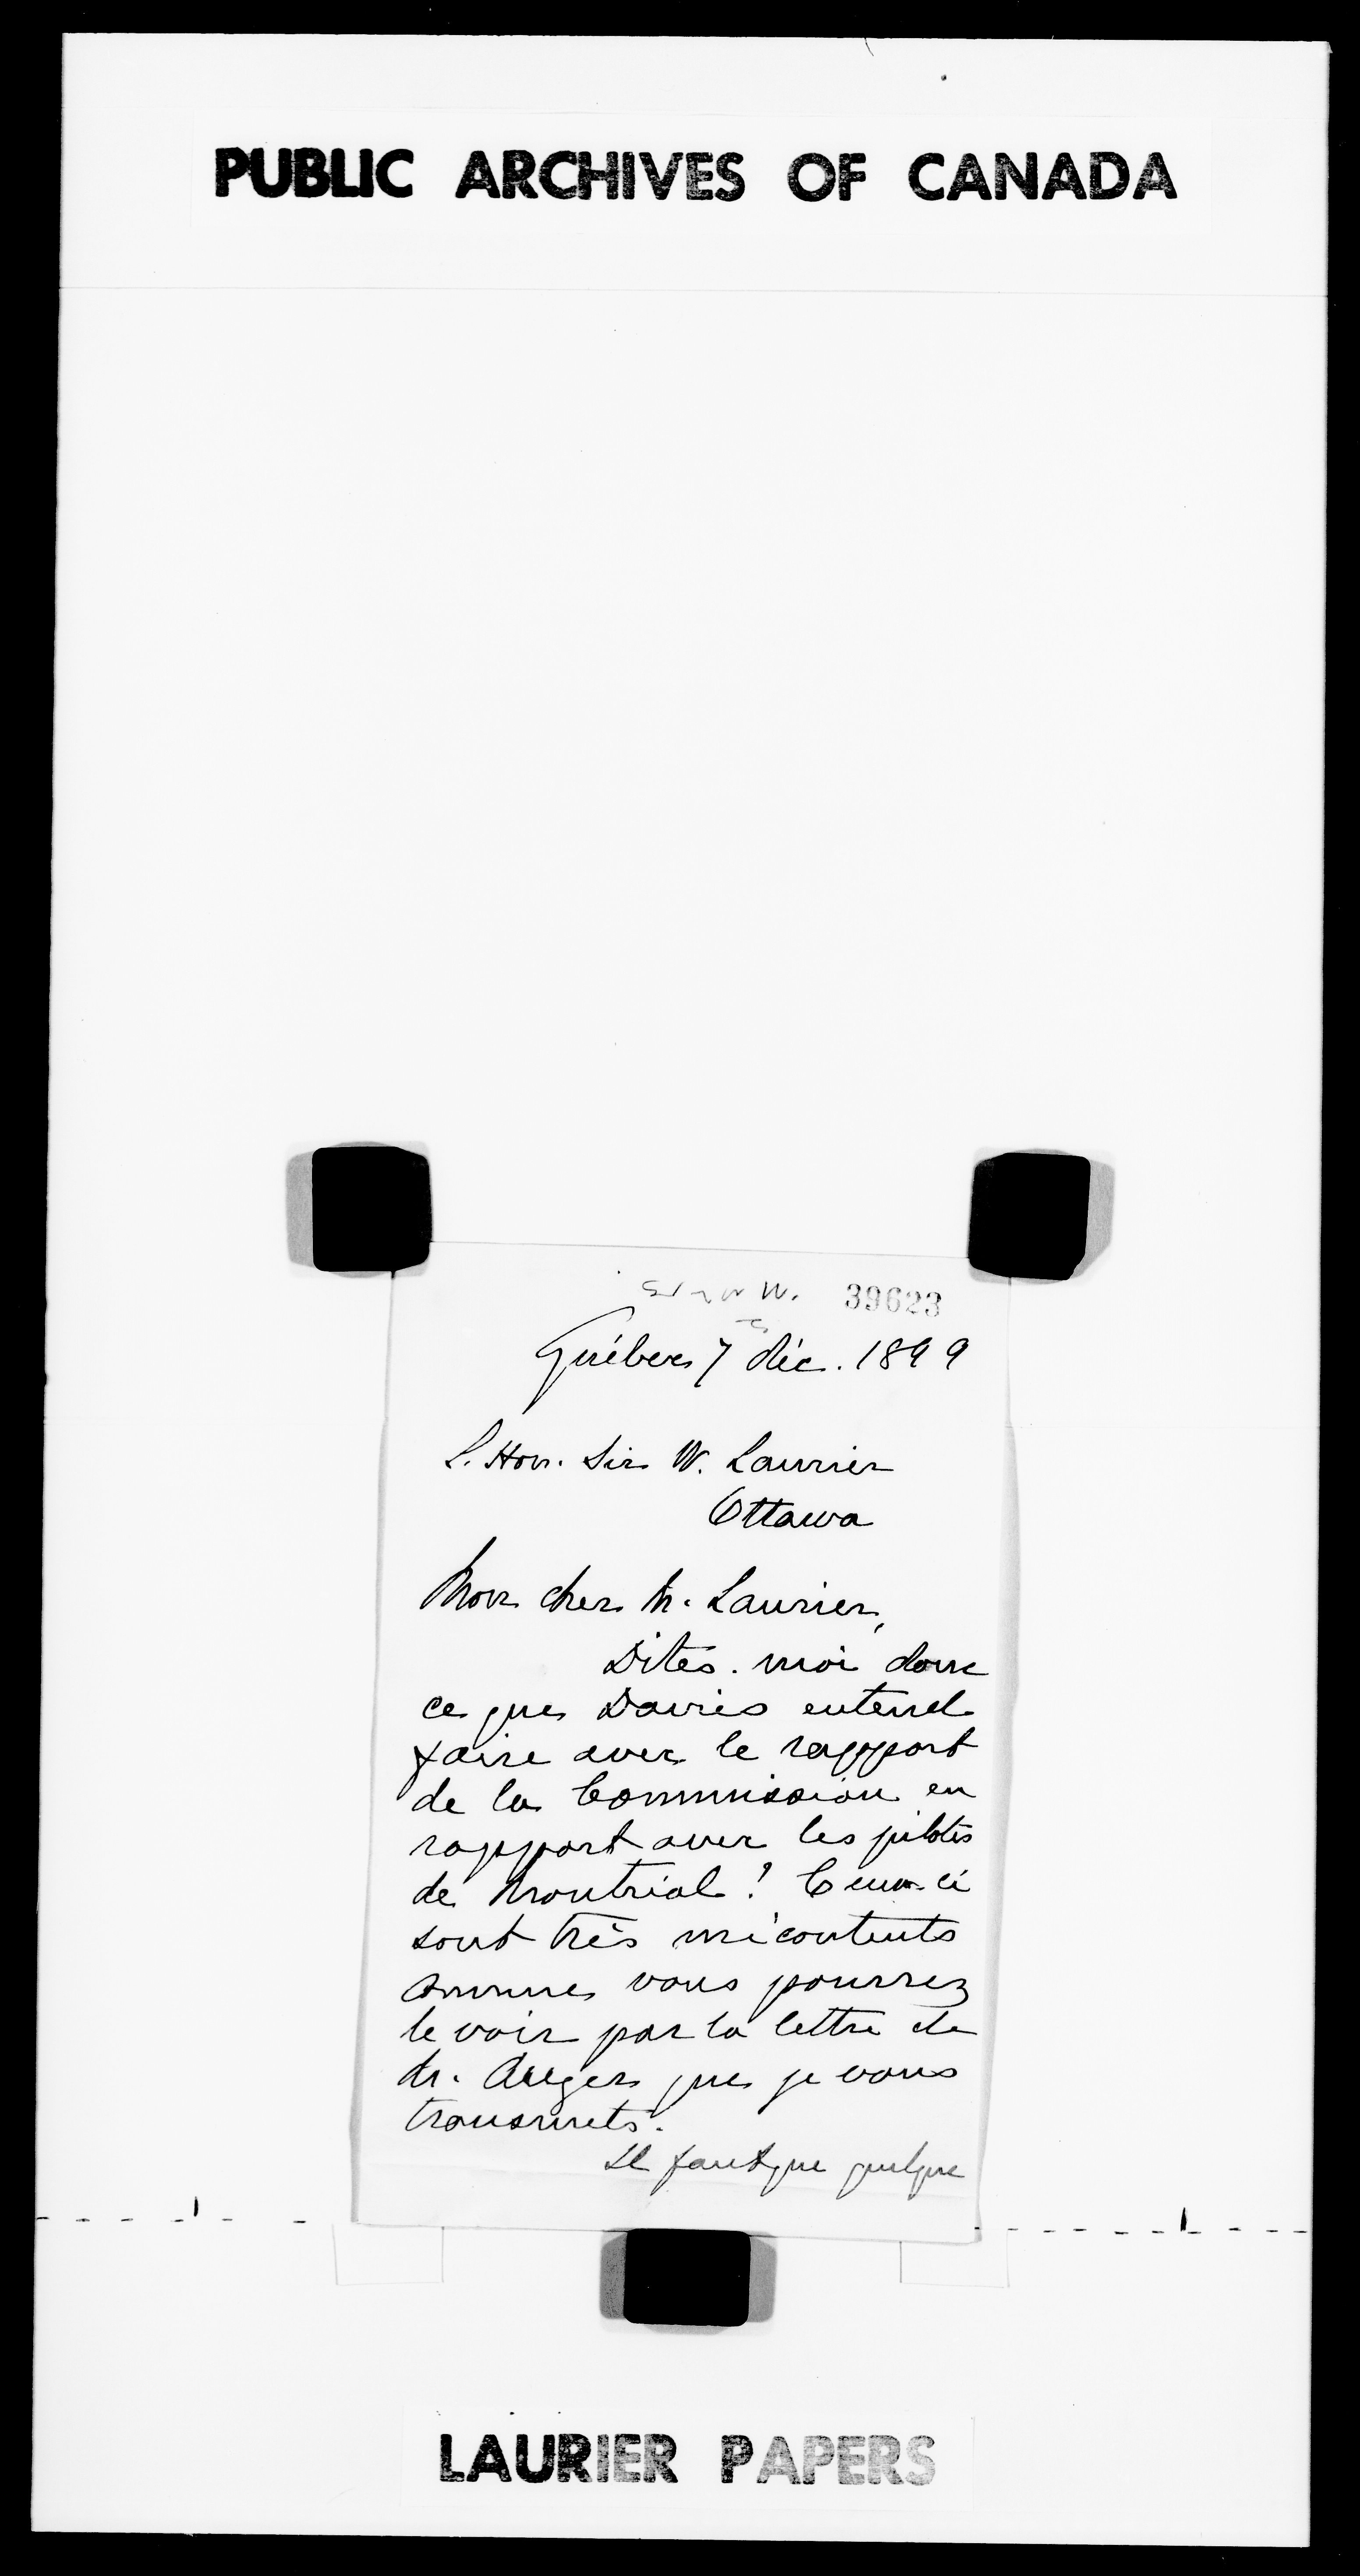 PUBLIC ARCHIVES OF CANADA
39623
Québec 7 déc. 1899
L. Hon. Sir W. Laurier
Ottawa
Mon cher M. Laurier,
Dites-moi donc
ce que Davies entend
faire avec le rapport
de la Commission en
rapport avec les pilotes
de Montréal? Ceux-ci
sont très mécontents
comme vous pourrez
le voir par la lettre de
M. Auger que je vous
transmets.
Il faut que quelque
LAURIER PAPERS